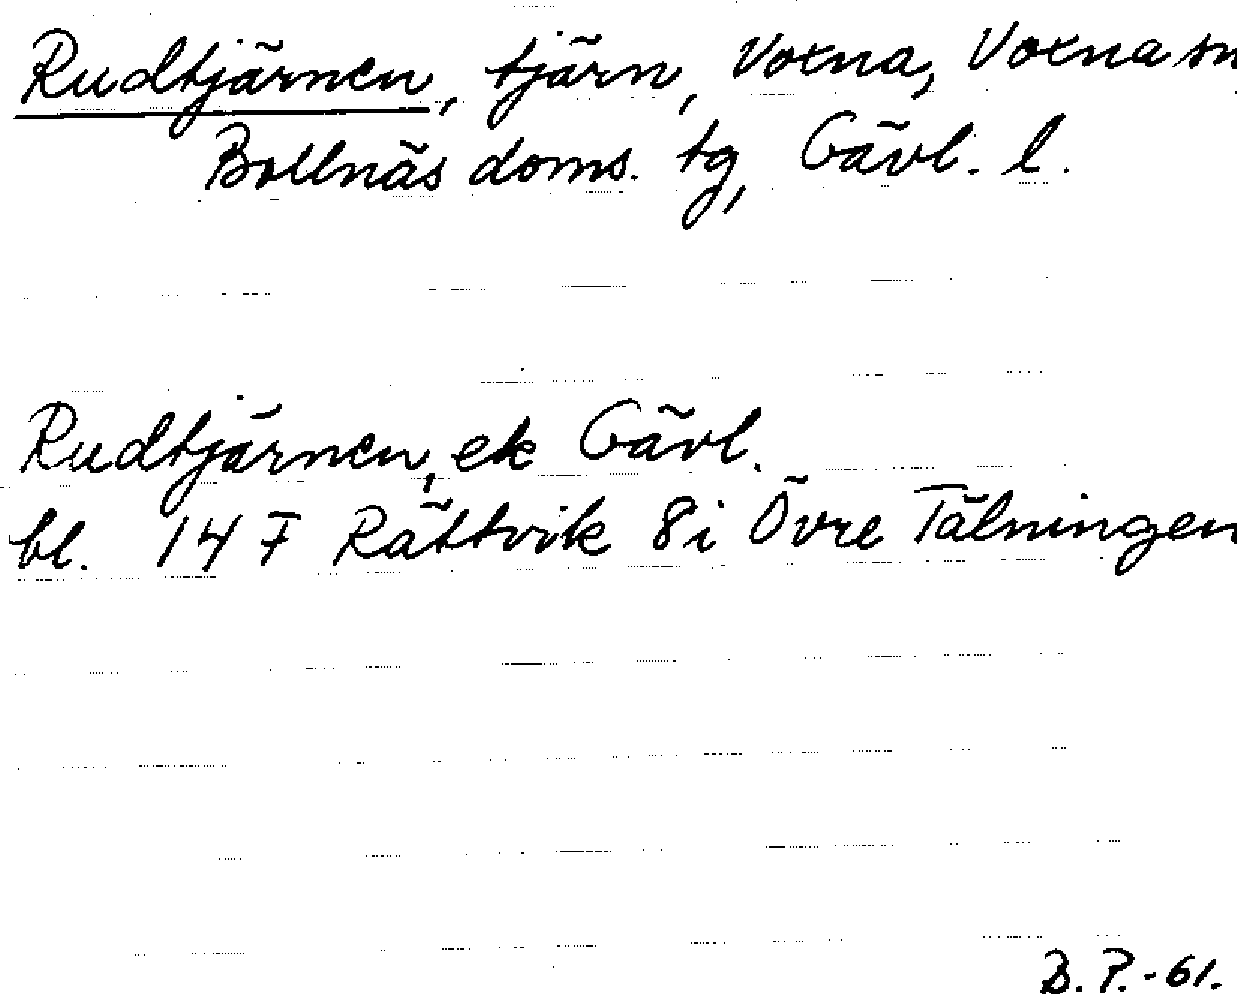 Rudtjärnen, tjärn, Voxna, Voxna sn
Bollnäs doms. tg, Gävl. l.
Rudtjärnen, ek Gävl.
bl. 14 F Rättvik 8i Övre Tälningen
B. P. - 61.